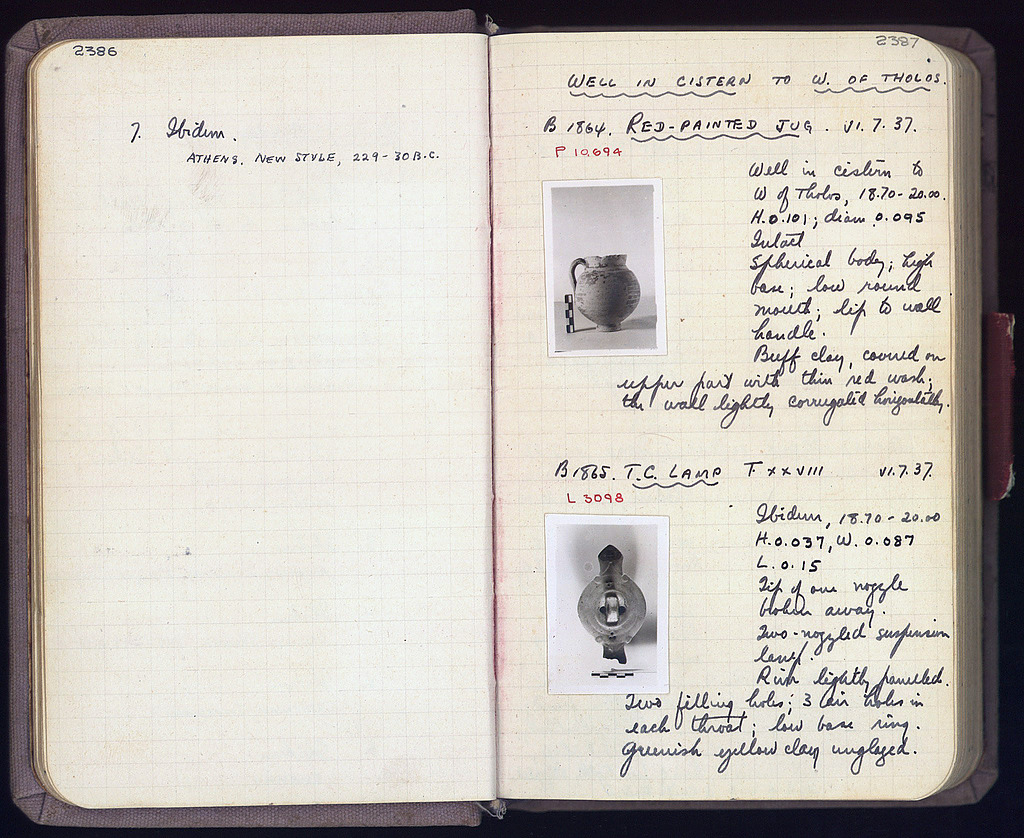 2386
7. Ibidem.
ATHENS, NEW STYLE, 229-30 B.C.
2387
WELL IN CISTERN TO W. OF THOLOS.
B 1864. RED-PAINTED JUG. VI.7.37.
P 10,694
Well in cistern to
W of Tholos, 18.70-20.00.
H.0.101; diam 0.095
Intact
Spherical body; high
base; low round
mouth; lip to wall
handle.
Buff clay, covered on
upper part with thin red wash;
the wall lightly corrugated horizontally.
B 1865. T.C. LAMP T XXVIII VI.7.37.
L 3098
Ibidem, 18.70-20.00
H.0.037, W. 0.087
L. 0.15
Tip of one nozzle
broken away.
Two-nozzled suspension
lamp.
Rim lightly panelled.
Two filling holes; 3 air holes in
each throat; low base ring.
Greenish yellow clay unglazed.